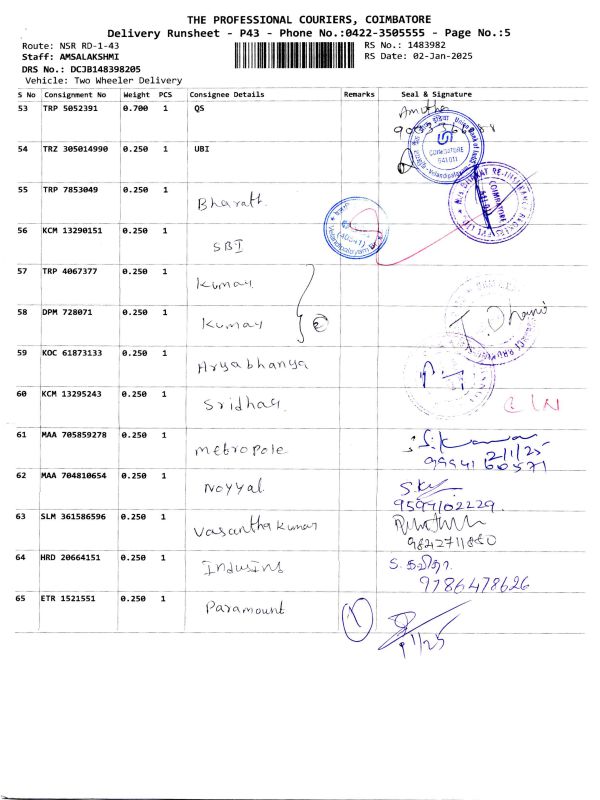 THE PROFESSIONAL COURIERS, COIMBATORE
Delivery Runsheet - P43 - Phone No.:0422-3505555 - Page No.:5
Route: NSR RD-1-43 RS No.: 1483982
Staff: AMSALAKSHMI RS Date: 02-Jan-2025
DRS No.: DCJB148398205
Vehicle: Two Wheeler Delivery
S No Consignment No Weight PCS Consignee Details Remarks Seal & Signature
53 TRP 5052391 0.700 1 QS Amutha
54 TRZ 305014990 0.250 1 UBI
COIMBATORE
641 011
55 TRP 7853049 0.250 1 Bharath.
COIMBATORE
56 KCM 13290151 0.250 1 SBI
57 TRP 4067377 0.250 1 Kumar
58 DPM 728071 0.250 1 Kumar 2
59 KOC 61873133 0.250 1 Aryabhanya
60 KCM 13295243 0.250 1 Sridhar
61 MAA 705859278 0.250 1 Metropole
2/1/25
62 MAA 704810654 0.250 1 Noyyal
9597102229
63 SLM 361586596 0.250 1 Vasanthakumar
9842711850
64 HRD 20664151 0.250 1 Indusins S. கவிதா
9786478626
65 ETR 1521551 0.250 1 Paramount 1